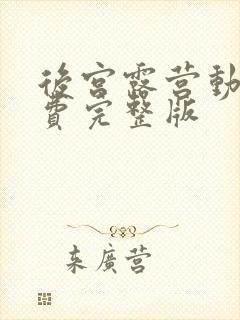 後宮露营動
費完整版
来廣营